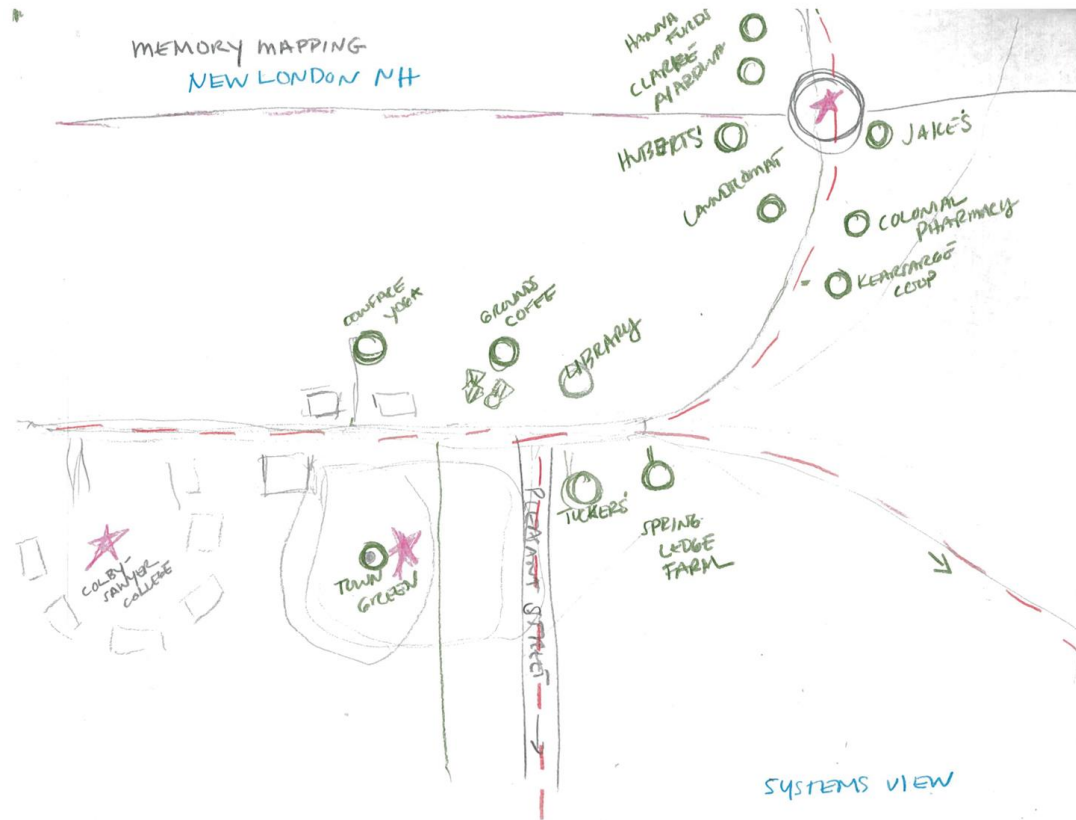 MEMORY MAPPING
NEW LONDON NH
HANNA
FORDS
CLARKE
HARDWA
HUBERTS'
JAKE'S
LAUNDROMAT
COLONIAL
PHARMACY
KEARSARGE
COOP
COWFACE
YOGA
GROUNDS
COFFE
LIBRARY
PLEASANT STREET
TUCKERS'
SPRING
LEDGE
FARM
COLBY-
SAWYER
COLLEGE
TOWN
GREEN
SYSTEMS VIEW